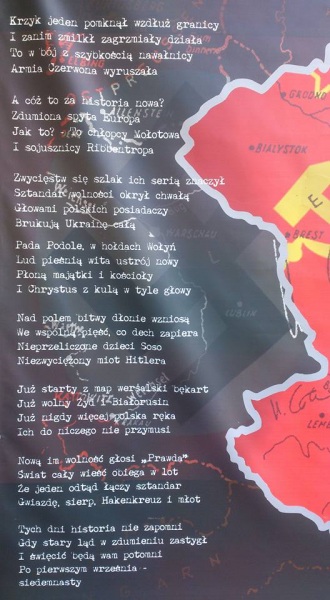 Krzyk jeden pomknął wzdłuż granicy
I zanim zmilkł zagrzmiały działa
To w bój z szybkością nawałnicy
Armia Czerwona wyruszała
A cóż to za historia nowa?
Zdumiona spyta Europa
Jak to? - To chłopcy Mołotowa
I sojusznicy Ribbentropa
Zwycięstw się szlak ich serią znaczył
Sztandar wolności okrył chwałą
Głowami polskich posiadaczy
Brukują Ukrainę całą
Pada Podole, w hołdach Wołyń
Lud pieśnią wita ustrój nowy
Płoną majątki i kościoły
I Chrystus z kulą w tyle głowy
Nad polem bitwy dłonie wzniosą
We wspólną pięść, co dech zapiera
Nieprzeliczone dzieci Soso
Niezwyciężony miot Hitlera
Już starty z map wersalski bękart
Już wolny Żyd i Białorusin
Już nigdy więcej polska ręka
Ich do niczego nie przymusi
Nową im wolność głosi „Prawda"
Świat cały wieść obiega w lot
Że jeden odtąd łączy sztandar
Gwiazdę, sierp, Hakenkreuz i młot
Tych dni historia nie zapomni
Gdy stary ląd w zdumieniu zastygł
I święcić będą wam potomni
Po pierwszym września -
siedemnasty
GRODNO
BIAŁYSTOK
BREST
LUBLIN
WARSCHAU
KRAKAU